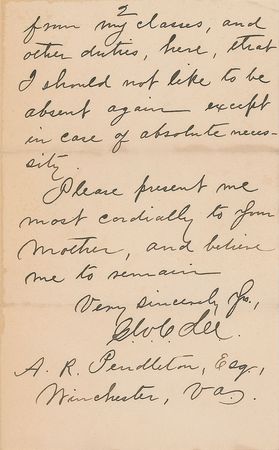 2
from my classes, and
other duties, here, that
I should not like to be
absent again except
in case of absolute neces-
sity.
Please present me
most cordially to your
Mother, and believe
me to remain
Very sincerely Yrs.,
G.W.C. Lee.
A. R. Pendleton, Esq.,
Winchester, Va.